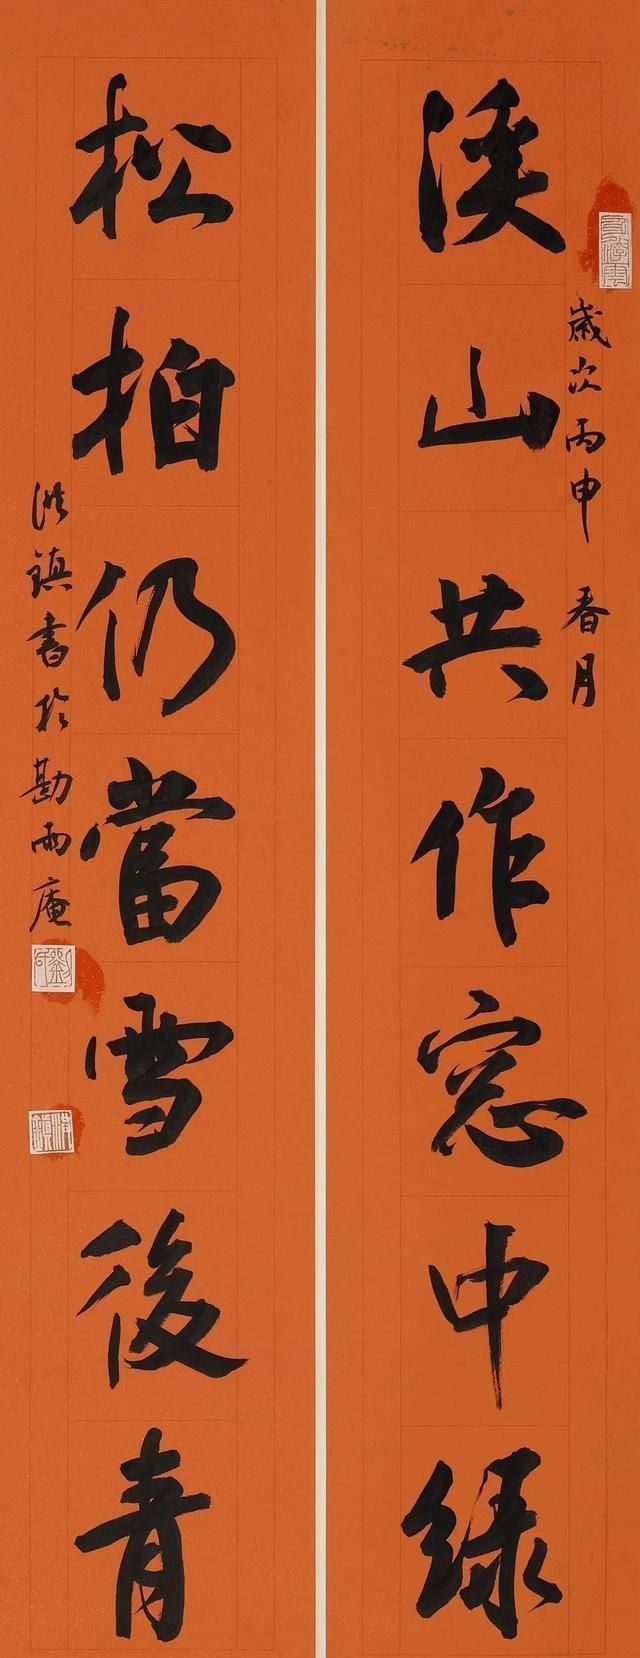 溪山共作窓中緑
歲次丙申 春月
松柏仍當雪後青
洪鎮書於勘雨庵